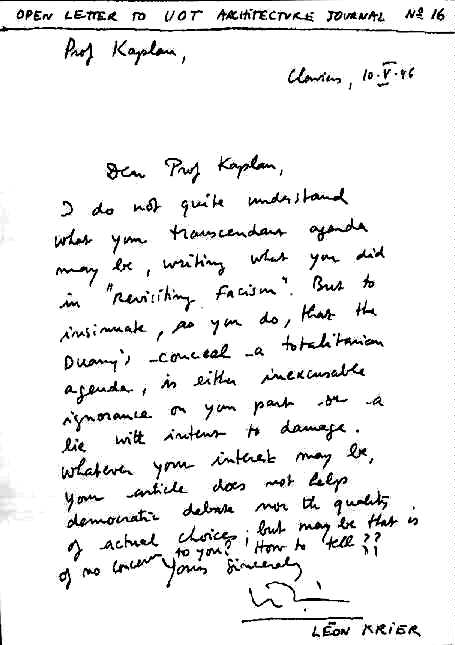 OPEN LETTER TO UOT ARCHITECTURE JOURNAL Nº 16
Prof Kaplan,
10.V.96
Dear Prof Kaplan,
I do not quite understand
what your transcendant agenda
may be, writing what you did
in "Revisiting Facism". But to
insinuate, as you do, that the
Duany's conceal a totalitarian
agenda, is either inexcusable
ignorance on your part or a
lie with intent to damage.
Whatever your interest may be,
your article does not help
democratic debate nor the quality
of actual choices; but may be that is
of no concern to you? How to tell??
Yours Sincerely
LÉON KRIER